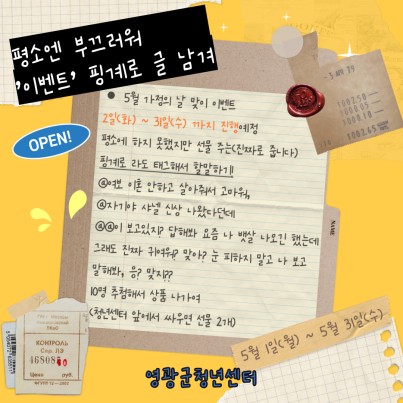 평소엔 부끄러워
'이벤트' 핑계로 글 남겨
OPEN!
● 5월 가정의 날 맞이 이벤트
2일(화) ~ 31일(수) 까지 진행예정
평소에 하지 못했지만 선물 주는(진짜로 줍니다)
핑계로 라도 태그해서 할말하기!
@여보 이혼 안하고 살아줘서 고마워,
@자기야 샤넬 신상 나왔다던데
@@이 보고있지? 답해봐 요즘 나 뱃살 나오긴 했는데
그래도 진짜 귀여워? 맞아? 눈 피하지 말고 나 보고
말해봐, 응? 맞지??
10명 추첨해서 상품 나가여
(청년센터 앞에서 싸우면 선물 2개)
NAME
КОНТРОЛЬ
Сер. ЛЭ
46808
Цена руб.
5월 1일(월) ~ 5월 31일(수)
영광군청년센터